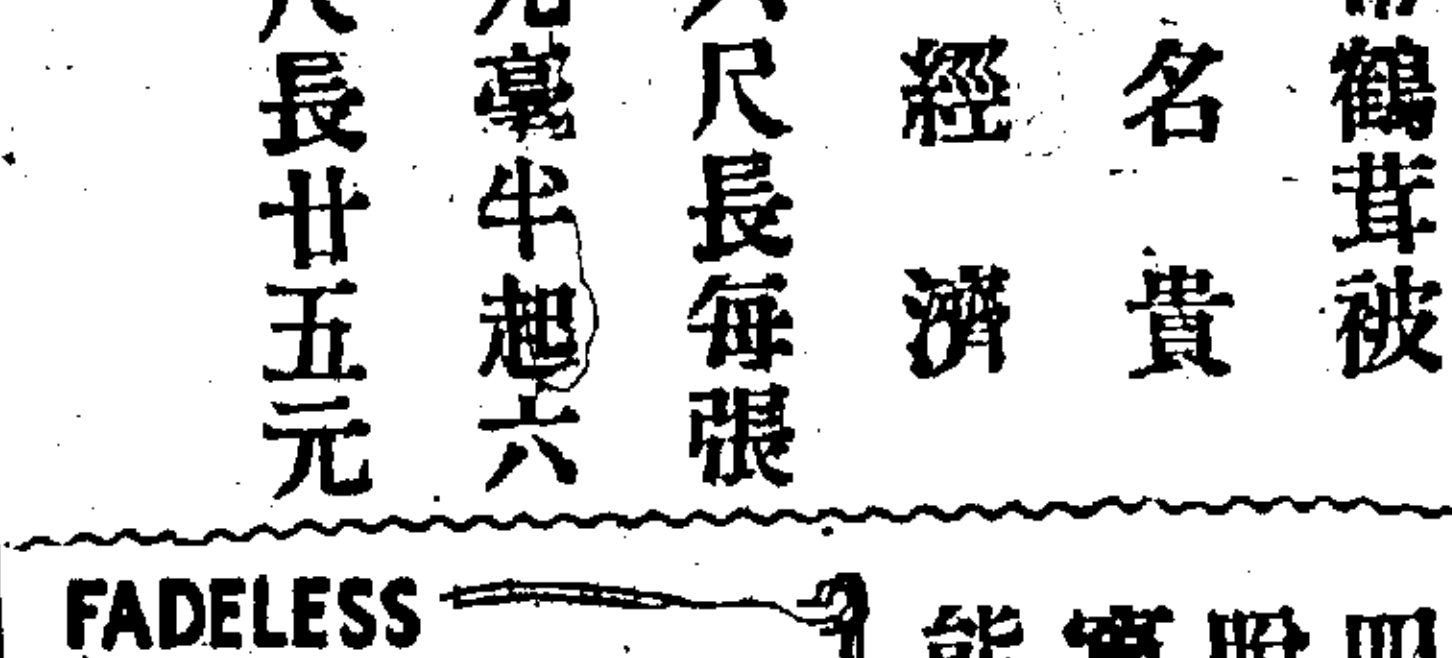 鶴茸被
名貴
經濟
尺長每張
毫半起六
長廿五元
FADELESS